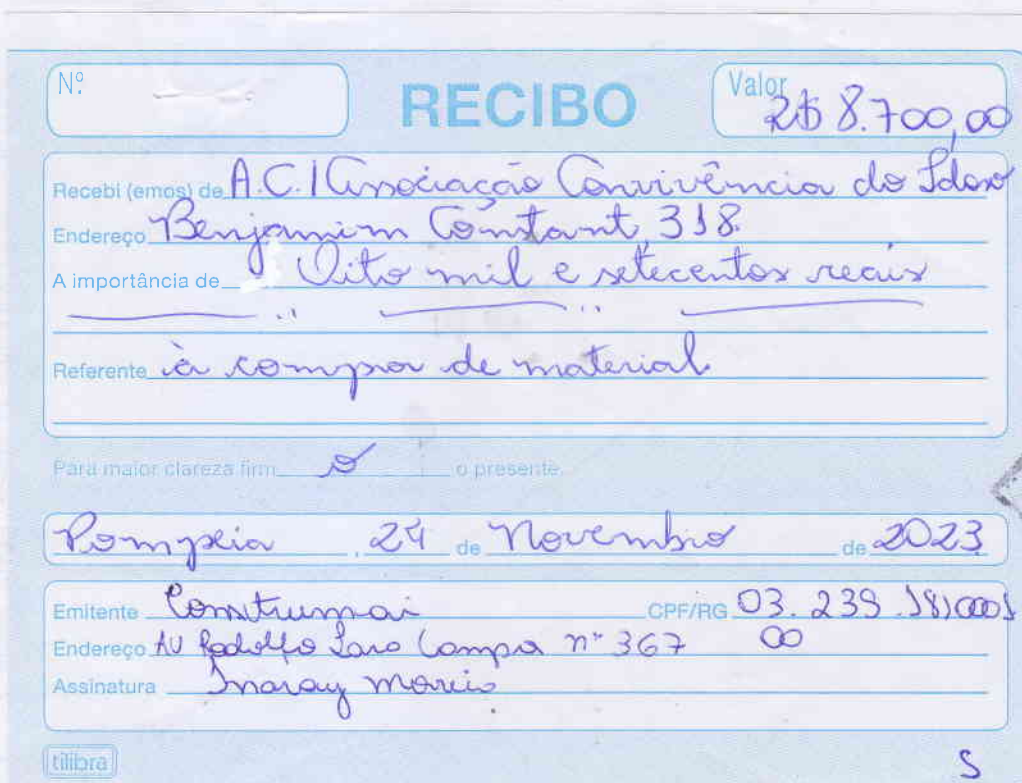 Nº
RECIBO
Valor
R$ 8.700,00
Recebi (emos) de A.C.I Associação Convivência do Idoso
Endereço Benjamim Constant, 318
A importância de Oito mil e setecentos reais
Referente à compra de material
Para maior clareza firm o o presente.
Pompeia, 24 de Novembro de 2023
Emitente Construmai CPF/RG 03.239.181/0001
Endereço AV Rodolfo Lara Campos nº 367 00
Assinatura
tilibra
S